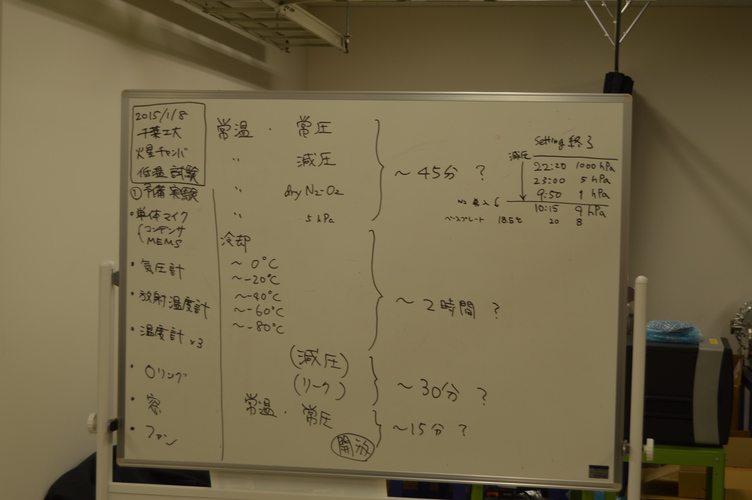 2015/1/8
千葉工大
火星チャンバ
低温試験
①予備実験
・単体マイク
(コンデンサ
MEMS
・気圧計
・放射温度計
・温度計 ×3
・Oリング
・窓
・ファン
常温・常圧
〃 減圧
〃 dry N2-O2
〃 5 hPa
～45分 ?
冷却
～ 0℃
～-20℃
～-40℃
～-60℃
～-80℃
～2時間 ?
(減圧)
(リーク)
～30分 ?
常温・常圧
開放
～15分 ?
Setting 終了
減圧
22:20 1000 hPa
23:00 5 hPa
9:50 1 hPa
10:15 9 hPa
ベースプレート 18.5℃ 20 8